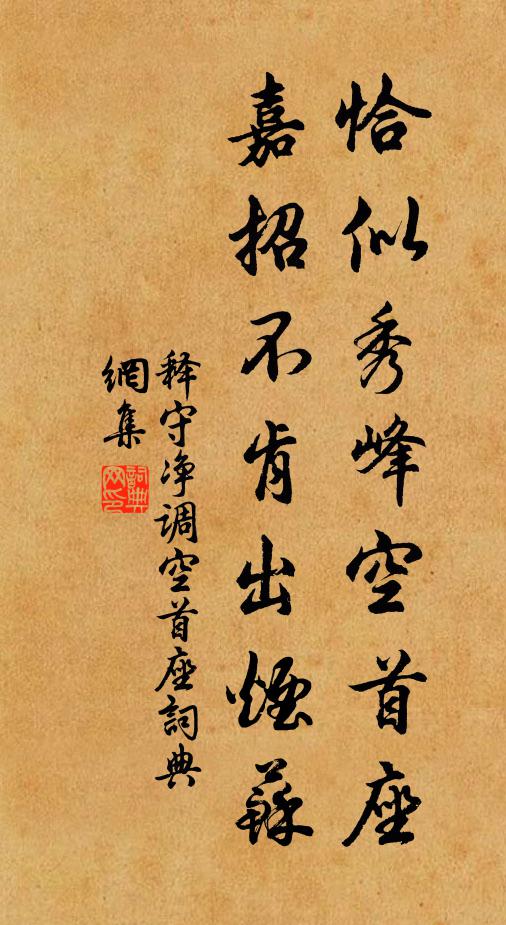 恰似秀峰空首座
嘉招不肯出煙
释守净调空首座詞典
網集
詞典
网印